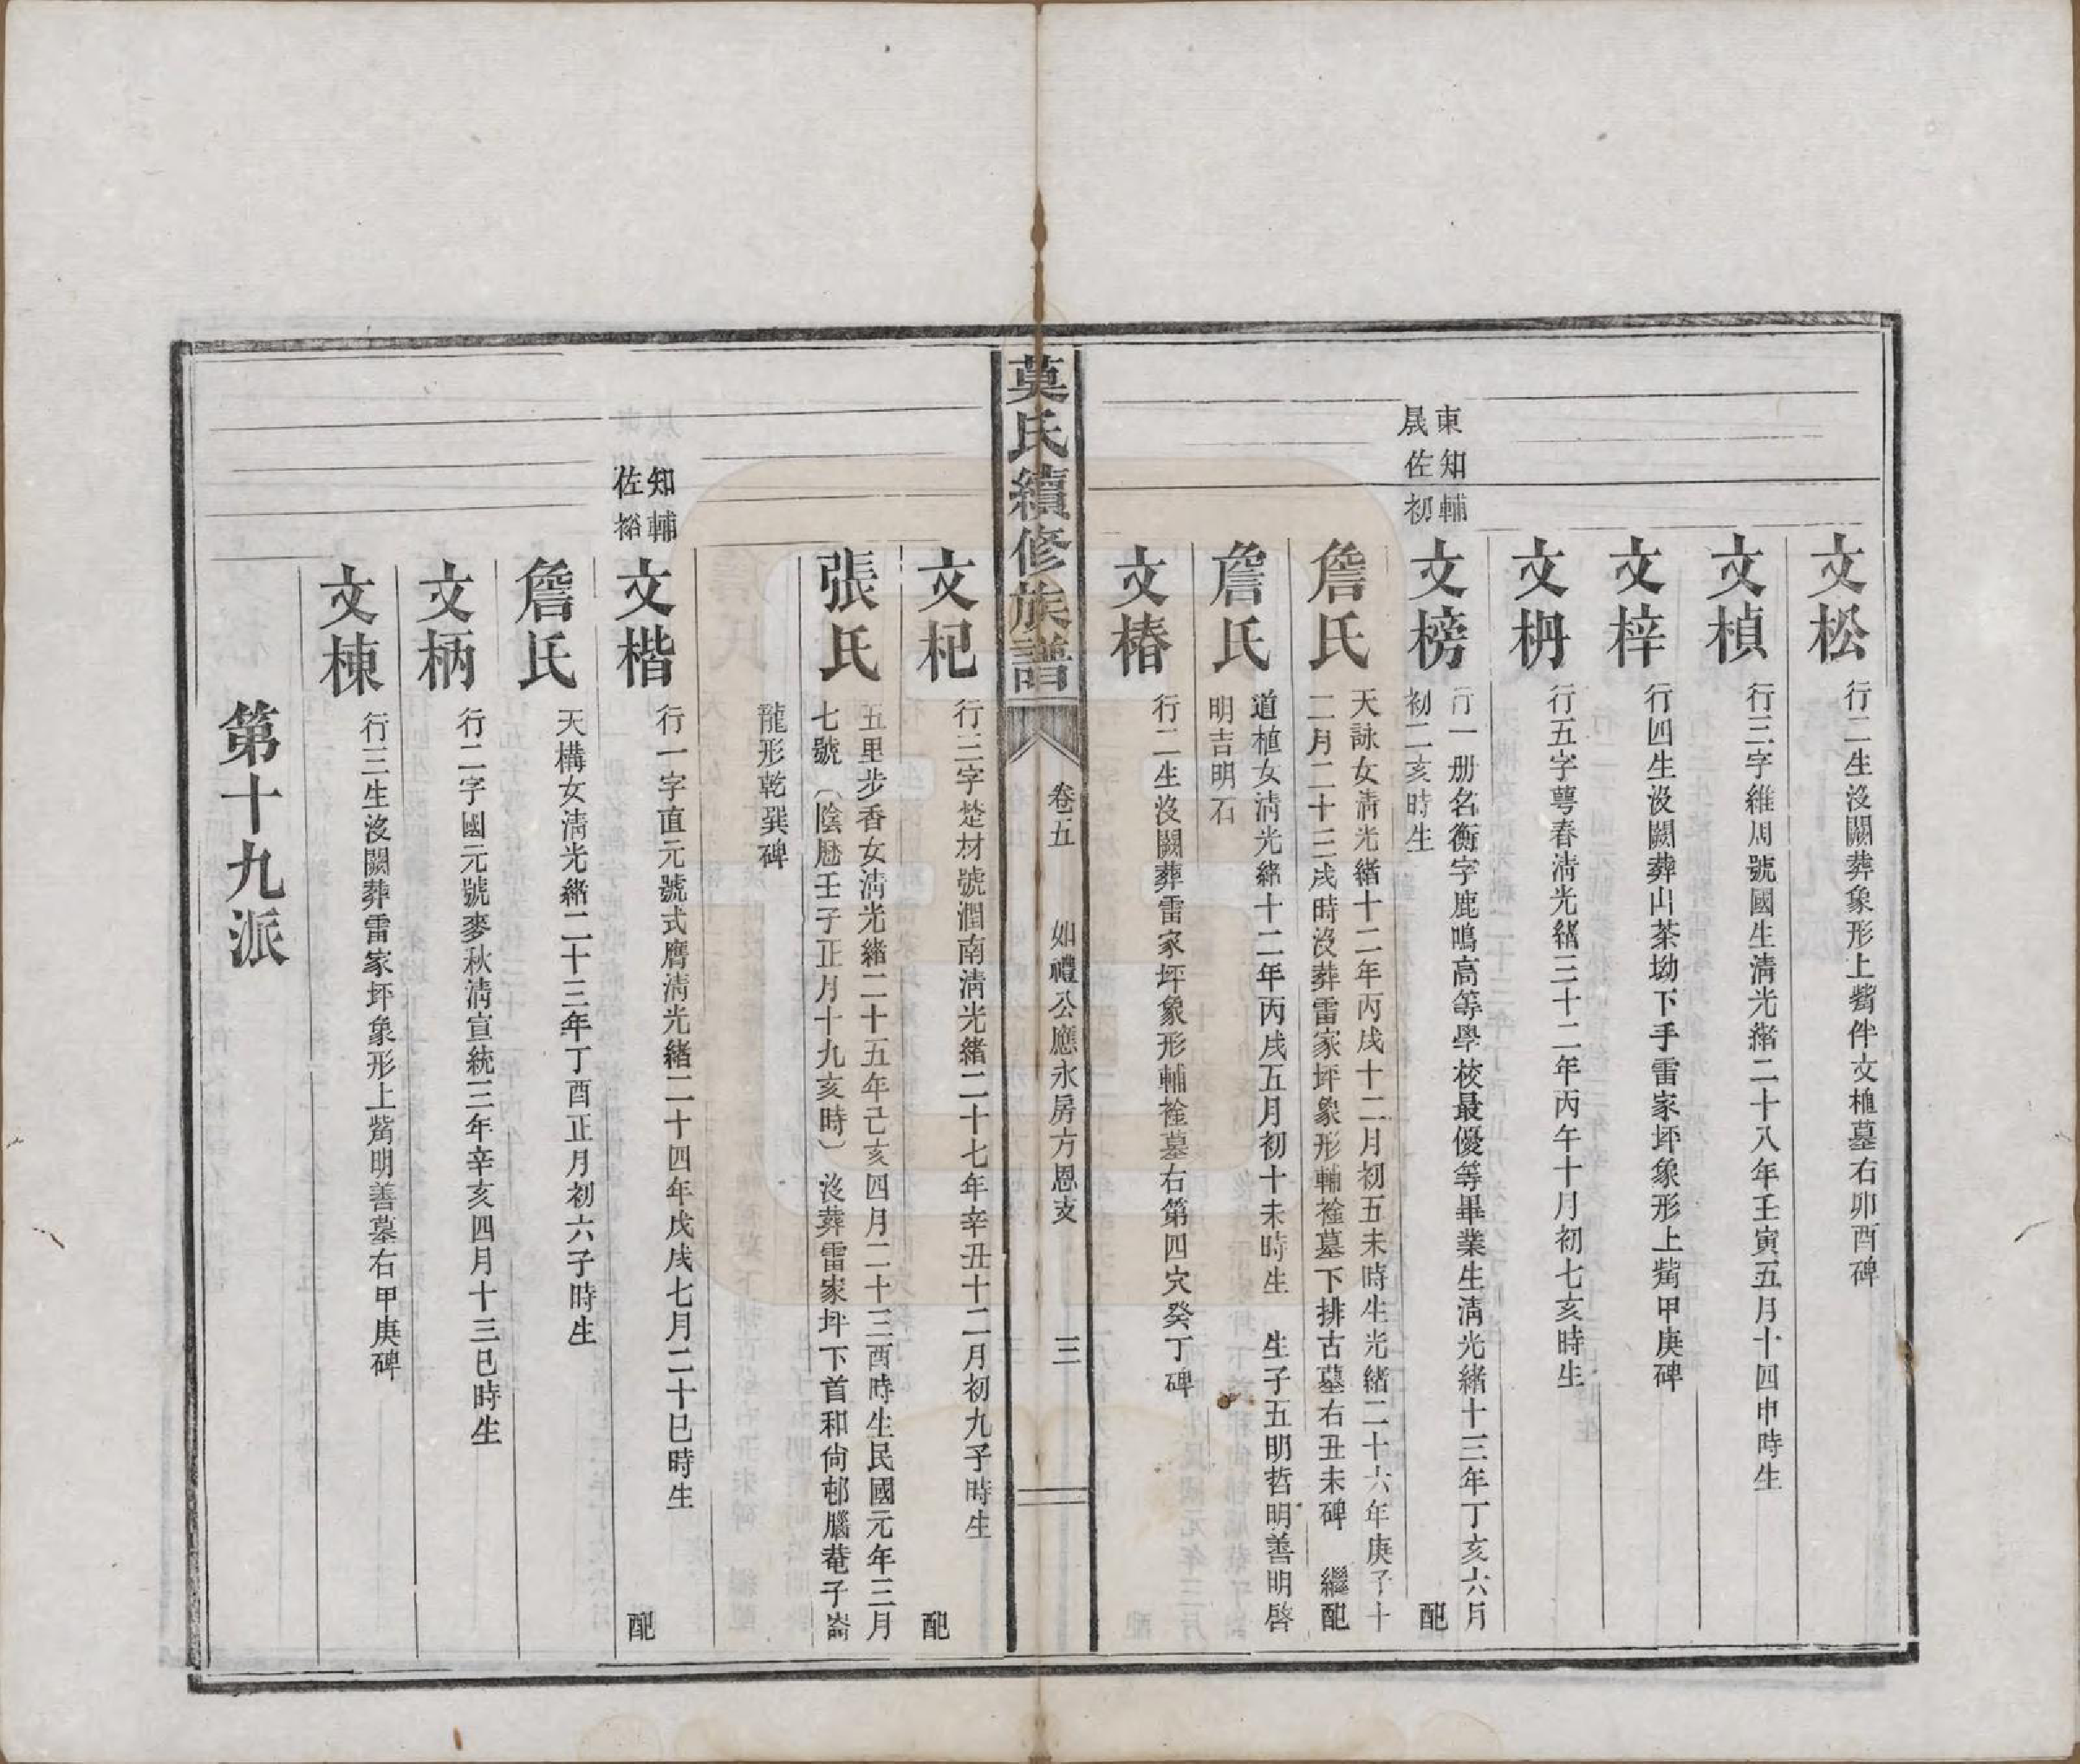 文松　行二生沒闕葬象形上觜件文植墓右卯酉碑
文楨　行三字維周號國生淸光緒二十八年壬寅五月十四申時生
文梓　行四生沒闕葬山茶坳下手雷家坪象形上觜甲庚碑
文枬　行五字蕚春淸光緒三十二年丙午十月初七亥時生
東知輔
晟佐初
文榜　行一册名衡字鹿鳴高等學校最優等畢業生淸光緒十三年丁亥六月
初二亥時生　配
詹氏　天詠女淸光緒十二年丙戌十二月初五未時生光緒二十六年庚子十
二月二十三戌時沒葬雷家坪象形輔裣墓下排古墓右丑未碑　繼配
詹氏　道植女淸光緒十二年丙戌五月初十未時生　生子五明哲明善明啓
明吉明石
文椿　行二生沒闕葬雷家坪象形輔裣墓右第四穴癸丁碑
莫氏續修族譜　卷五　如禮公應永房方恩支　三
文杞　行三字楚材號潤南淸光緒二十七年辛丑十二月初九子時生　配
張氏　五里步香女淸光緒二十五年己亥四月二十三酉時生民國元年三月
七號（陰曆壬子正月十九亥時）沒葬雷家坪下首和尙邨腦菴子崙
龍形乾巽碑
知輔
佐裕
文楷　行一字直元號式膺淸光緒二十四年戊戌七月二十巳時生　配
詹氏　天構女淸光緒二十三年丁酉正月初六子時生
文柄　行二字國元號麥秋淸宣統三年辛亥四月十三巳時生
文棟　行三生沒闕葬雷家坪象形上觜明善墓右甲庚碑
第十九派